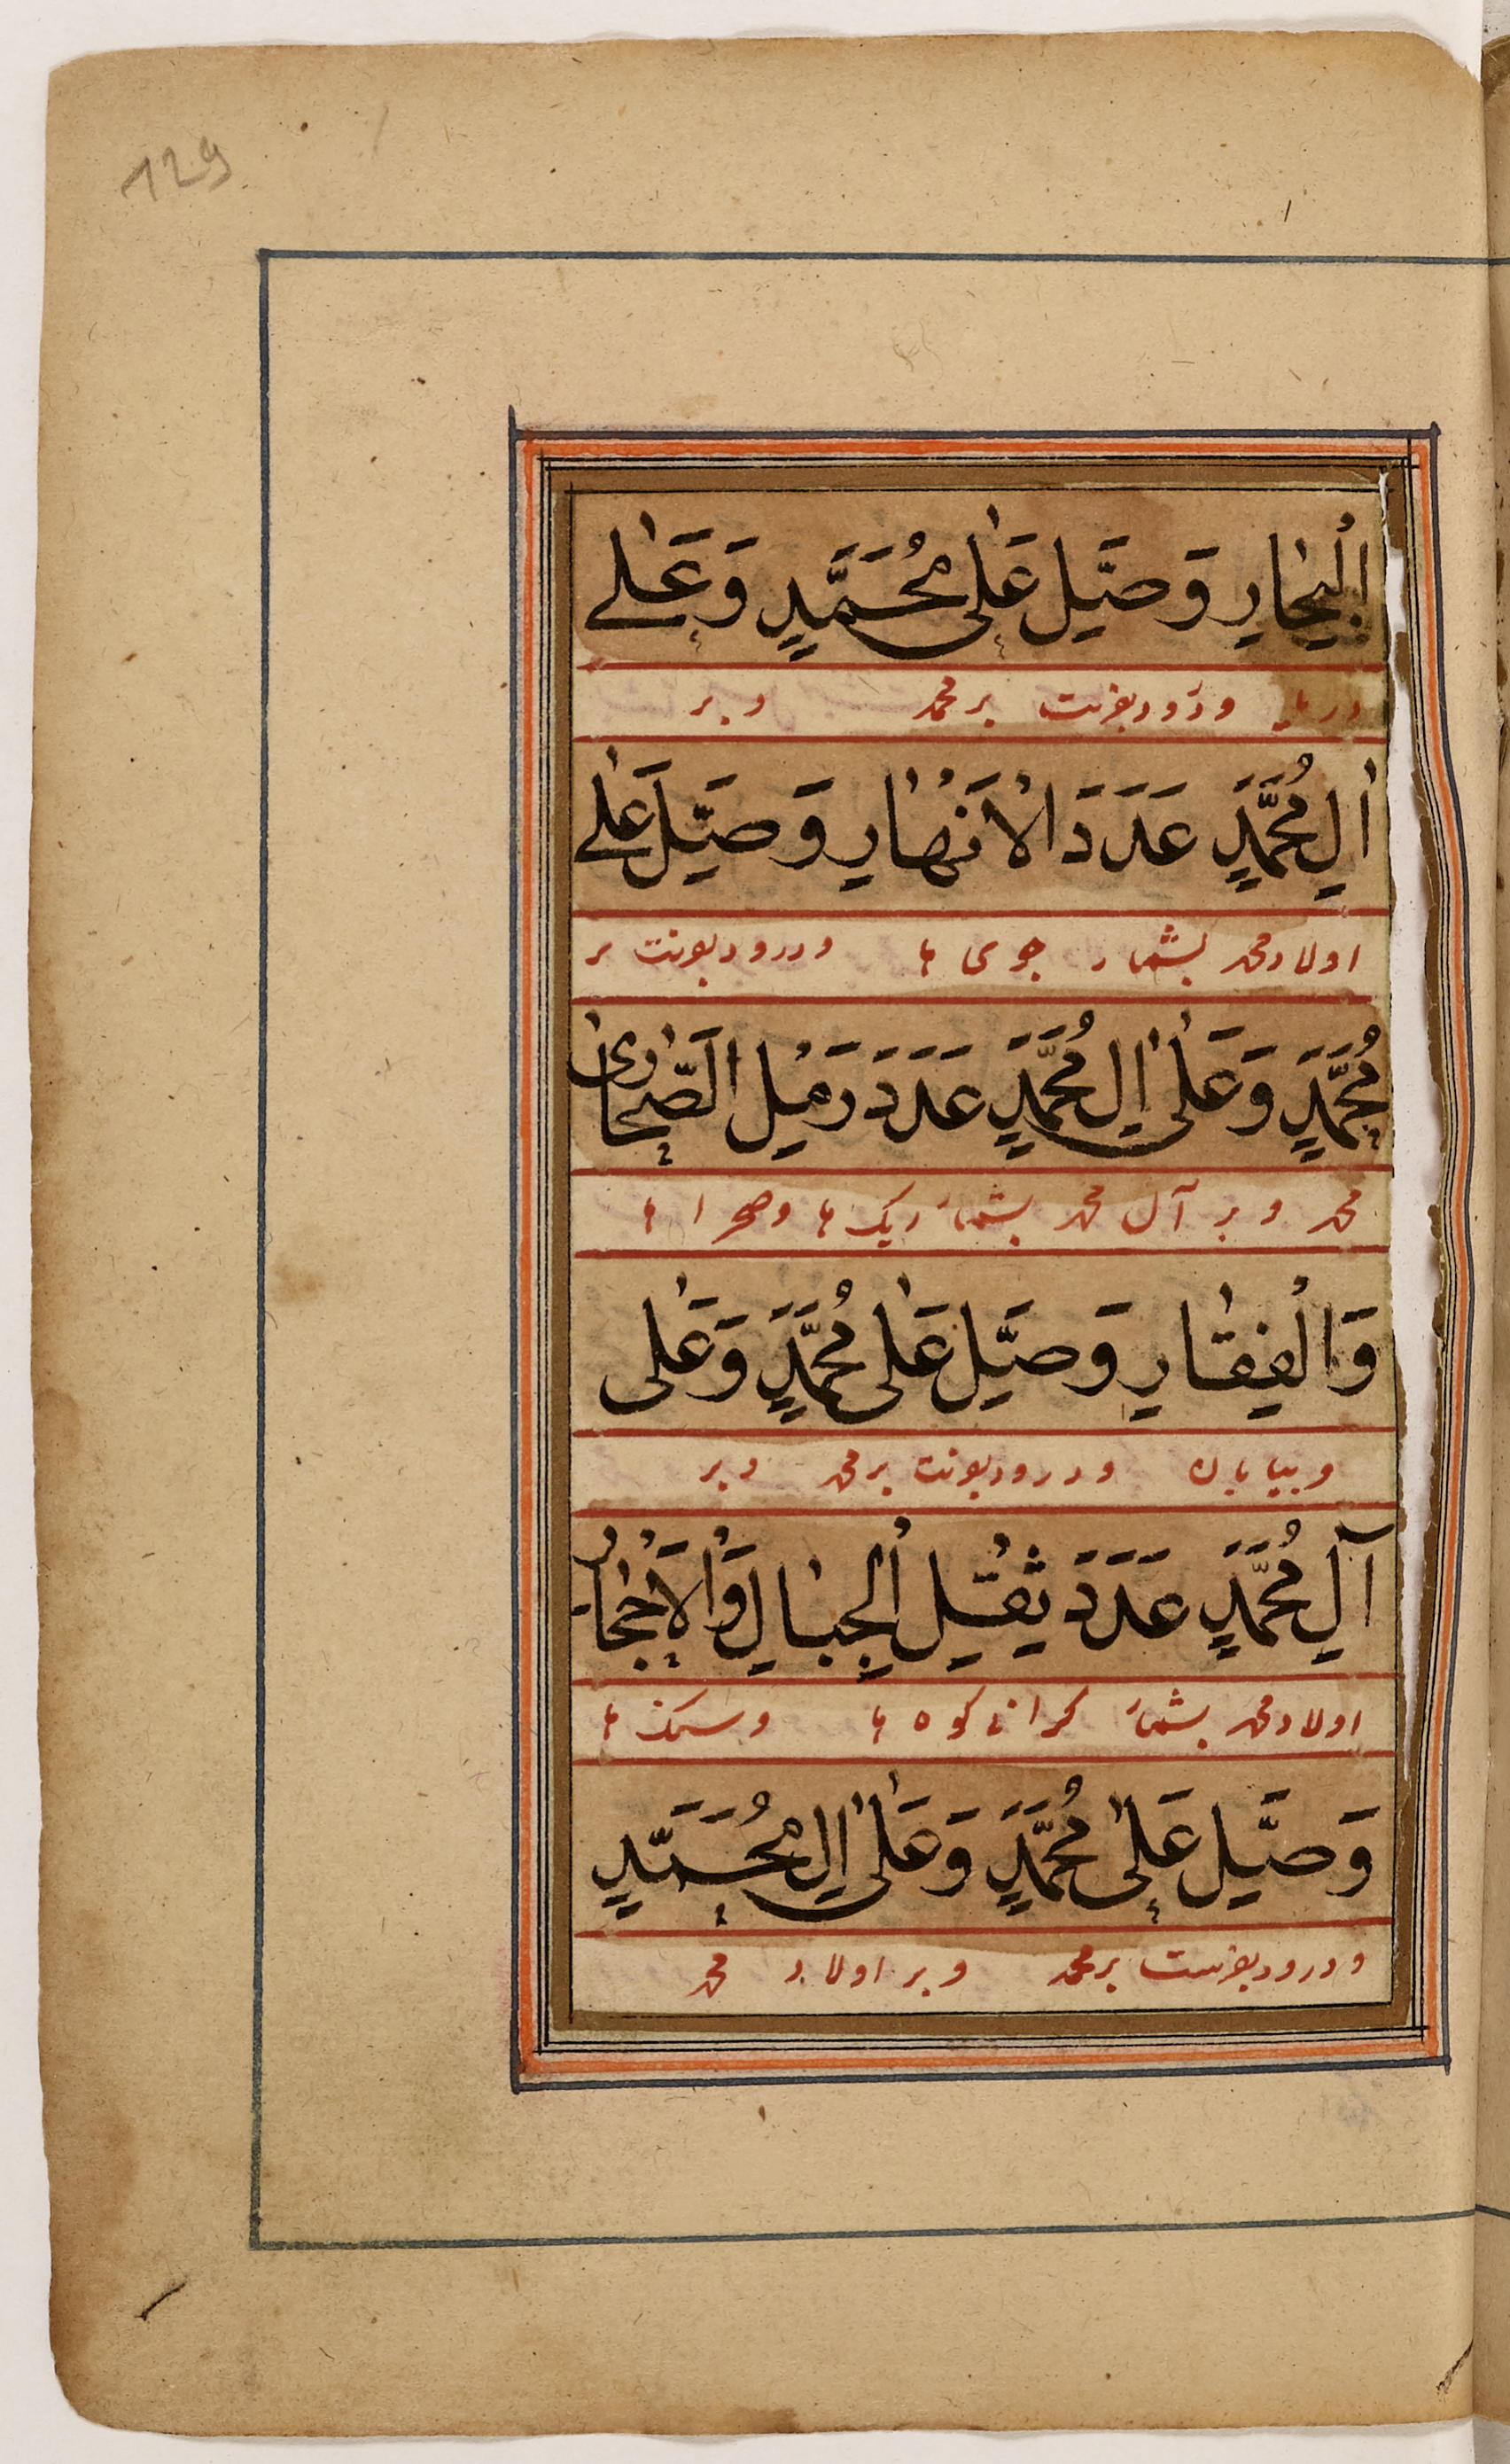 129
الْبِحَارِ وَصَلِّ عَلٰى مُحَمَّدٍ وَعَلٰى
دریاها و درود بفرست بر محمد و بر
اٰلِ مُحَمَّدٍ عَدَدَ الْاَنْهَارِ وَصَلِّ عَلٰى
اولاد محمد بشمار جوی ها و درود بفرست بر
مُحَمَّدٍ وَعَلٰى اٰلِ مُحَمَّدٍ عَدَدَ رَمْلِ الصَّحَارٰى
محمد و بر آل محمد بشمار ریک ها و صحرا ها
وَالْقِفَارِ وَصَلِّ عَلٰى مُحَمَّدٍ وَعَلٰى
و بیابان و درود بفرست بر محمد و بر
آلِ مُحَمَّدٍ عَدَدَ ثِقْلِ الْجِبَالِ وَالْاَحْجَارِ
اولاد محمد بشمار کرانی کوه ها و سنک ها
وَصَلِّ عَلٰى مُحَمَّدٍ وَعَلٰى اٰلِ مُحَمَّدٍ
و درود بفرست بر محمد و بر اولاد محمد